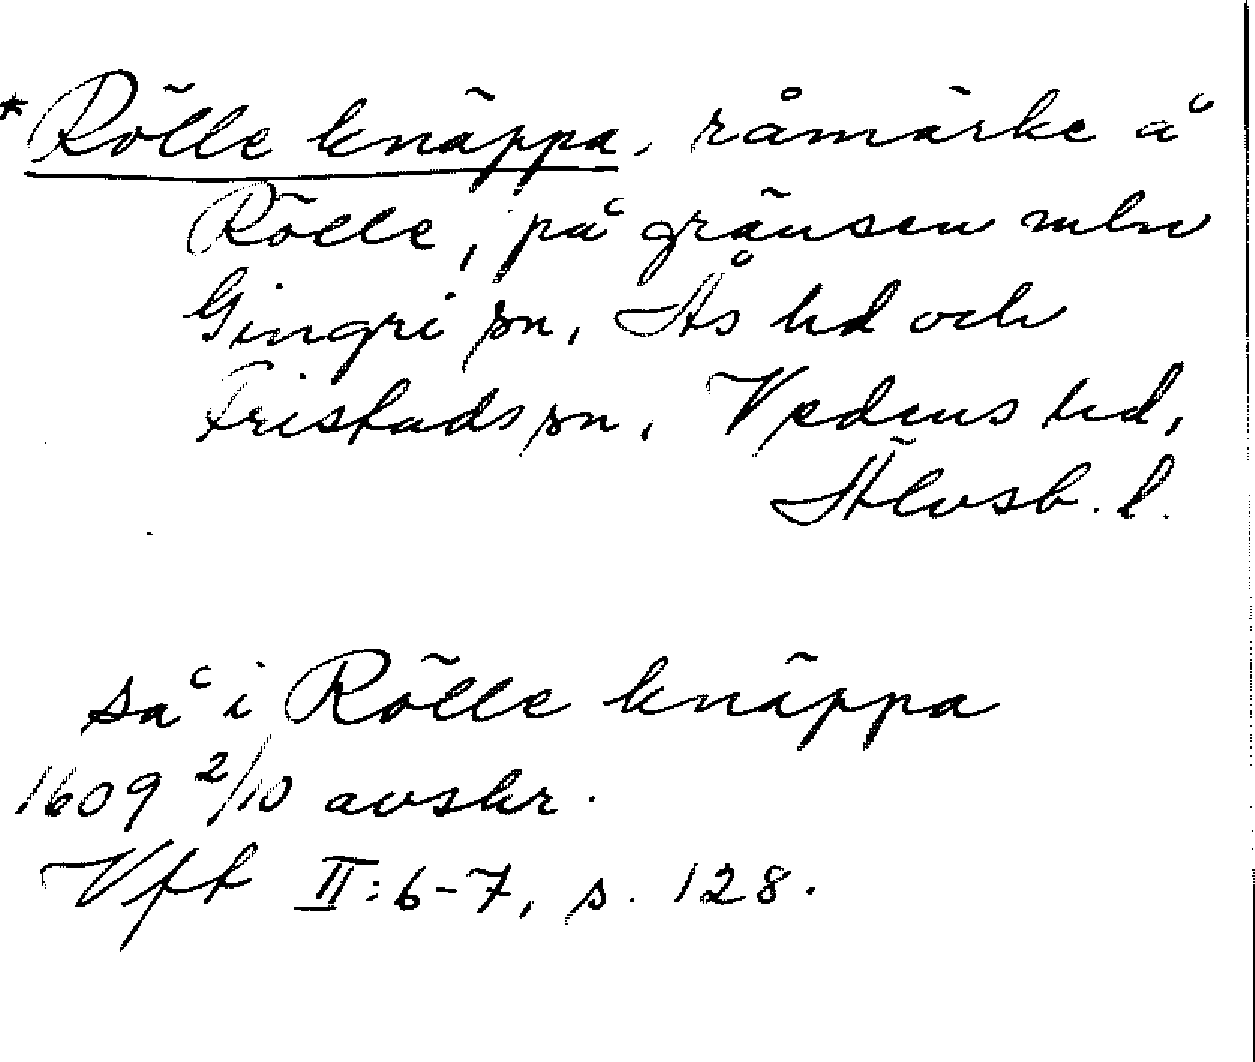 *Rölle knäppa, råmärke å
Rölle, på gränsen mln
Gingri sn, Ås hd och
Fristads sn, Vedens hd,
Älvsb. l.
så i Rölle knäppa
1609 2/10 avskr.
Vft II: 6-7, s. 128.